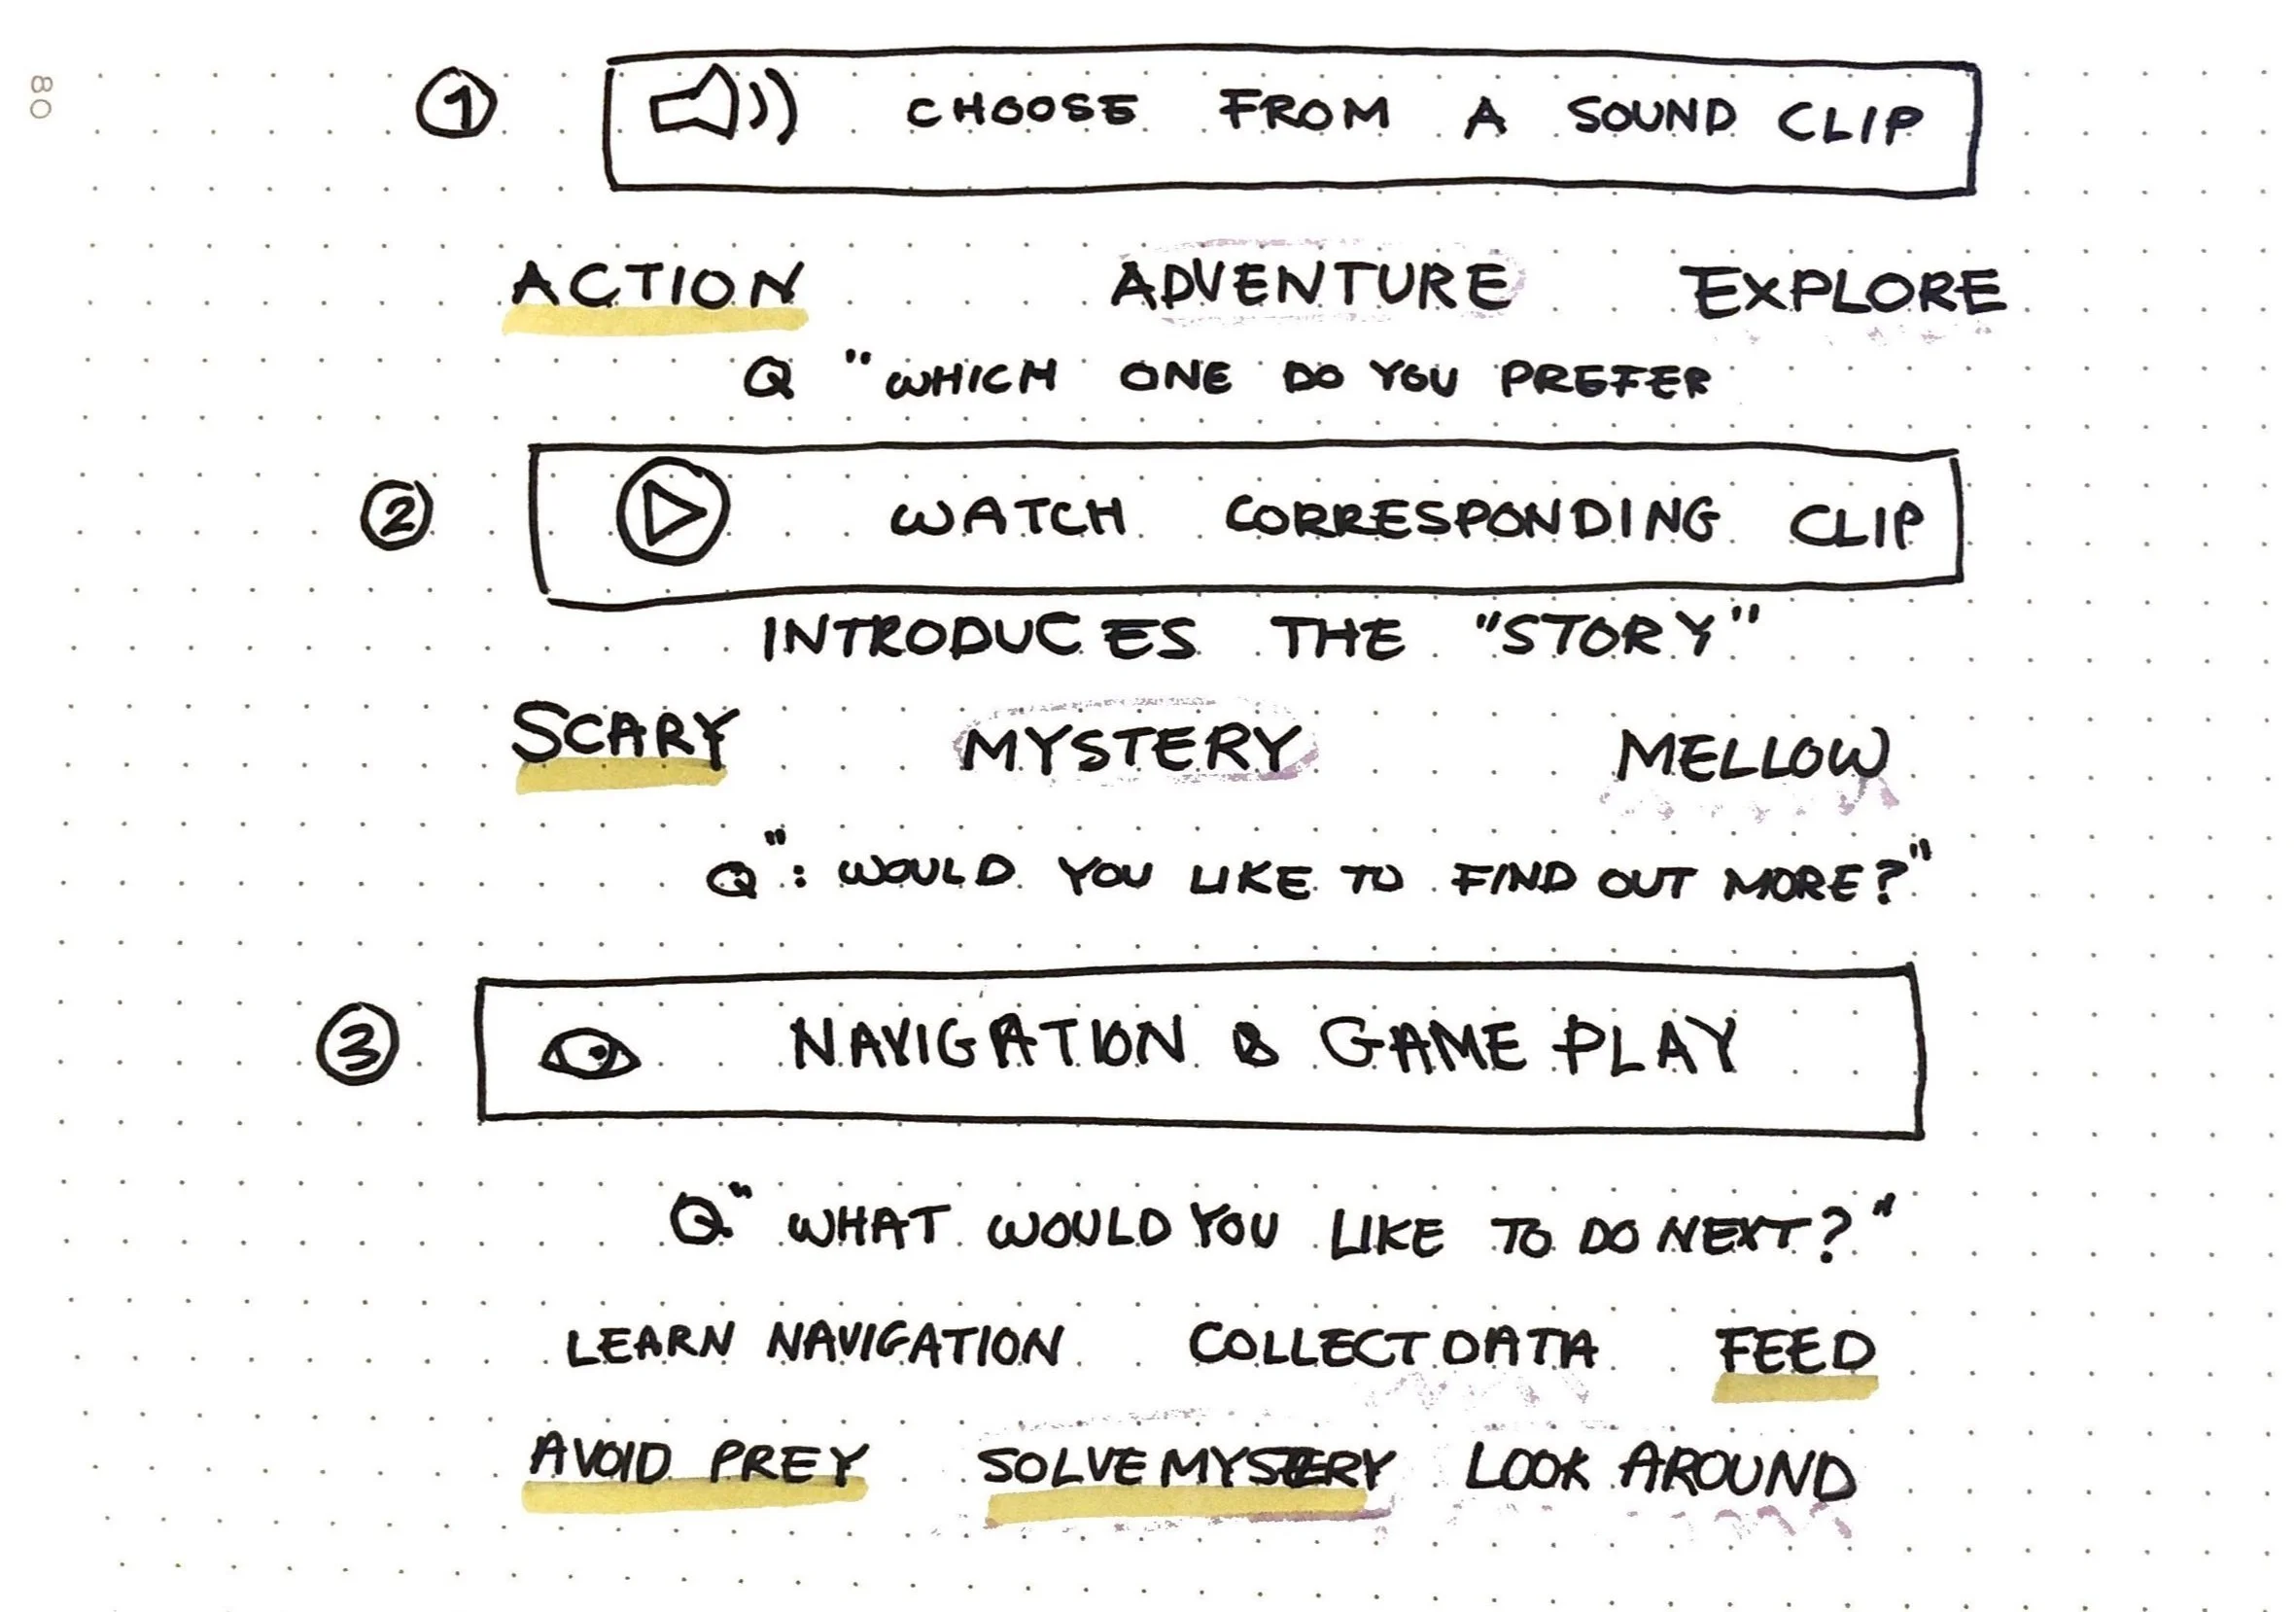 80
1 CHOOSE FROM A SOUND CLIP
ACTION ADVENTURE EXPLORE
Q "WHICH ONE DO YOU PREFER
2 WATCH CORRESPONDING CLIP
INTRODUCES THE "STORY"
SCARY MYSTERY MELLOW
Q": WOULD YOU LIKE TO FIND OUT MORE?"
3 NAVIGATION & GAME PLAY
Q" WHAT WOULD YOU LIKE TO DO NEXT?"
LEARN NAVIGATION COLLECT DATA FEED
AVOID PREY SOLVE MYSTERY LOOK AROUND